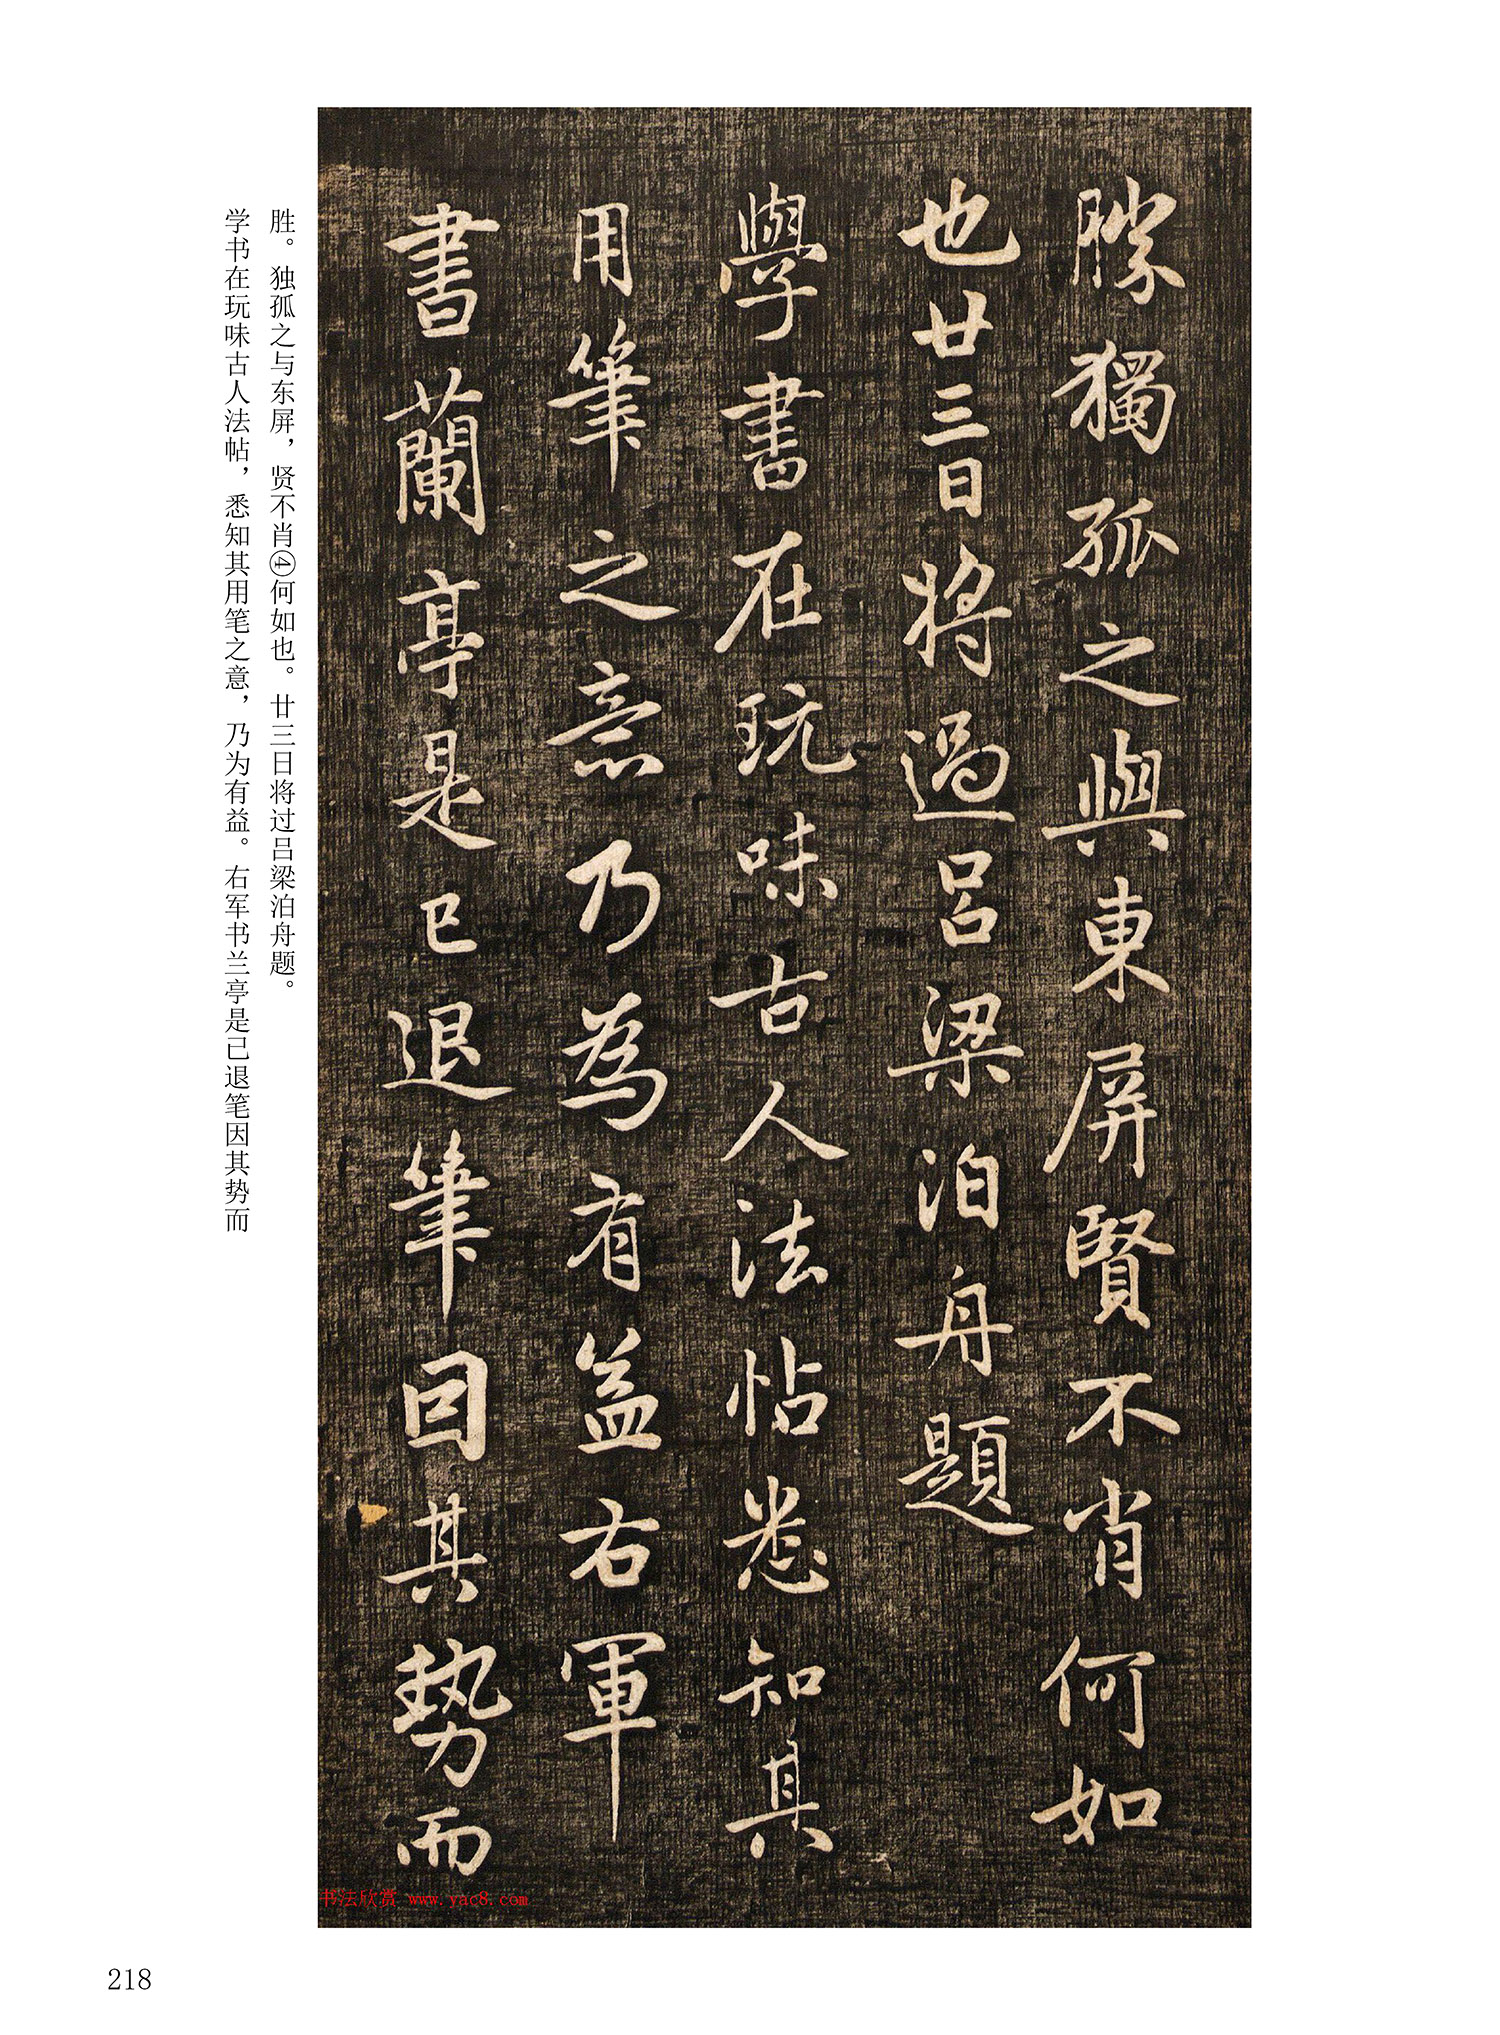 勝獨孤之與東屏賢不肖何如
也廿三日将過吕梁泊舟題
學書在玩味古人法帖悉知其
用筆之意乃為有益右軍
書蘭亭是已退筆因其勢而
胜。独孤之与东屏，贤不肖④何如也。廿三日将过吕梁泊舟题。
学书在玩味古人法帖，悉知其用笔之意，乃为有益。右军书兰亭是已退笔因其势而
书法欣赏 www.yac8.com
218